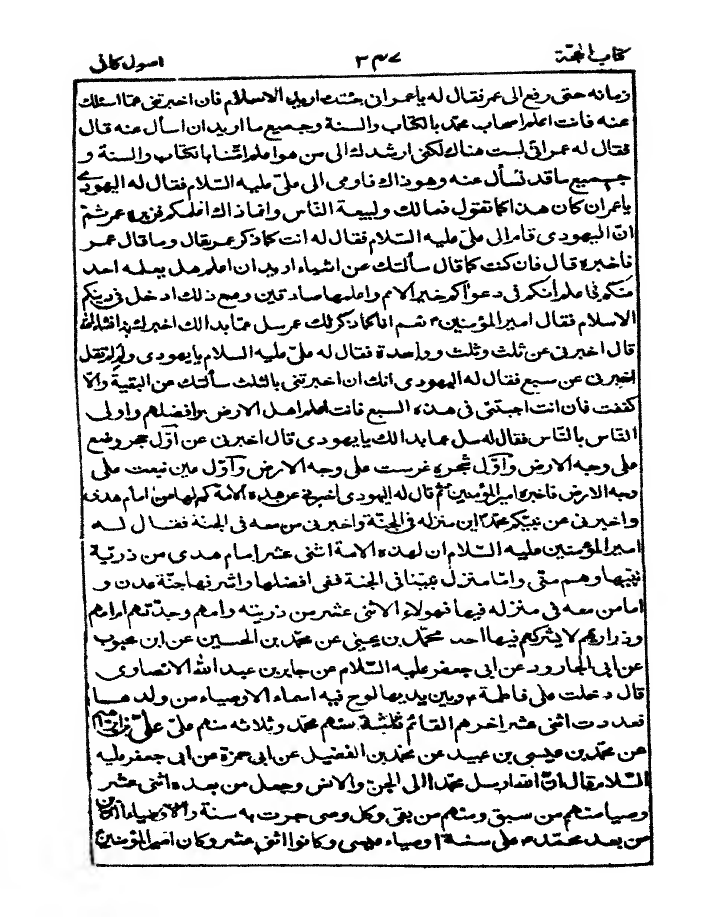 كتاب الحجّة ٣٤٧ اصول كافى
زمانه حتى رفع الى عمر فقال له يا عمر انى جئتك اريد الاسلام فان اخبرتنى عمّا اسئلك
عنه فانت اعلم اصحاب محمّد بالكتاب والسنة وجميع ما اريد ان اسأل عنه قال
فقال له عمر انى لست هناك لكنى ارشدك الى من هو اعلم امّتنا بالكتاب والسنة و
جميع ما قد تسأل عنه وهو ذاك فاومى الى علىّ عليه السّلام فقال له اليهودى
يا عمر ان كان هذا كما تقول فما لك ولبيعة النّاس وانما ذاك اعلمكم فزبره عمر ثمّ
انّ اليهودى قام الى علىّ عليه السّلام فقال له انت كما ذكر عمر فقال وما قال عمر
فاخبره قال فان كنت كما قال سألتك عن اشياء اريد ان اعلم هل يعلمه احد
منكم فاعلم انكم فى دعواكم خير الامم واعلمها صادقين ومع ذلك ادخل فى دينكم
الاسلام فقال امير المؤمنين ع نعم انا كما ذكر لك عمر سل عمّا بدا لك اخبرك به انشاءالله
قال اخبرنى عن ثلث وثلث وواحدة فقال له علىّ عليه السلام يا يهودى ولم لم تقل
اخبرنى عن سبع فقال له اليهودى انك ان اخبرتنى بالثلث سألتك عن البقية والّا
كففت فان انت اجبتنى فى هذه السبع فانت اعلم اهل الارض وافضلهم واولى
النّاس بالنّاس فقال له سل عما بدا لك يا يهودى قال اخبرنى عن اوّل حجر وضع
على وجه الارض واوّل شجرة غرست على وجه الارض واوّل عين نبعت على
وجه الارض فاخبره امير المؤمنين ثم قال له اليهودى اخبرنى عن هذه الامّة كم لها من امام هدى
واخبرنى عن نبيّكم محمّد اين منزله فى الجنّة واخبرنى من معه فى الجنة فقال له
امير المؤمنين عليه السّلام ان لهذه الامة اثنى عشر امام هدى من ذريّة
نبيّها وهم منّى وامّا منزل نبيّنا فى الجنة ففى افضلها واشرفها جنّة عدن و
اما من معه فى منزله فيها فهؤلاء الاثنى عشر من ذريته وامهم وجدّتهم وام امهم
وذراريهم لا يشركهم فيها احد محمّد بن يحيى عن محمّد بن الحسين عن ابن محبوب
عن ابى الجارود عن ابى جعفر عليه السّلام عن جابر بن عبد الله الانصارى
قال دخلت على فاطمة ع وبين يديها لوح فيه اسماء الاوصياء من ولدها
فعددت اثنى عشر اخرهم القائم ثلثة منهم محمّد وثلاثه منهم علىّ علىّ بن ابراهيم
عن محمّد بن عيسى بن عبيد عن محمّد بن الفضيل عن ابى حمزة عن ابى جعفر عليه
السّلام قال انّ الله ارسل محمّدا الى الجنّ والانس وجعل من بعده اثنى عشر
وصيا منهم من سبق ومنهم من بقى وكل وصى جرت به سنة والاوصياء الذين
من بعد محمّد ص على سنة اوصياء عيسى وكانوا اثنى عشر وكان امير المؤمنين